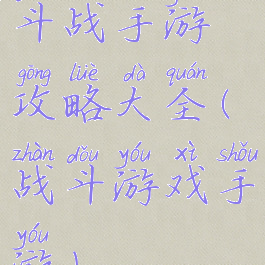 斗战手游
gōng lüè dà quán
攻略大全(
zhàn dǒu yóu xì shǒu
战斗游戏手
yóu
游)